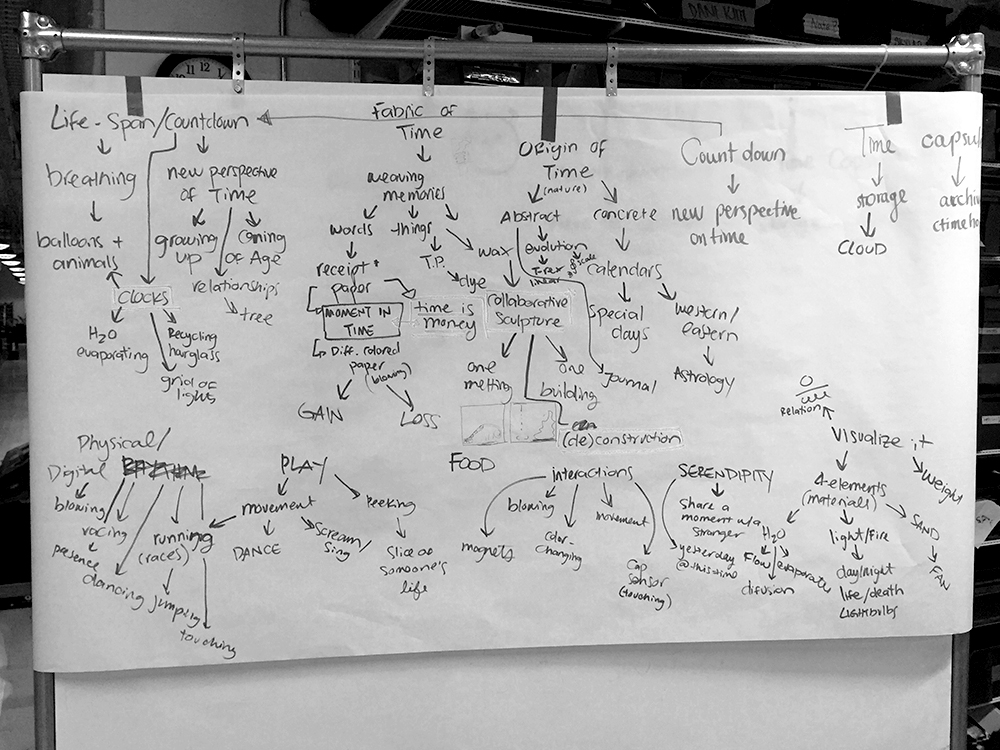 11
12
1
DANI KIM
Life-Span/Countdown
breathing
balloons +
animals
new perspective
of Time
growing
up
coming
of Age
relationships
tree
CLOCKS
H2O
evaporating
Recycling
hourglass
grid of
lights
Fabric of
Time
weaving
memories
words
things
wax
T.P.
dye
receipt*
paper
MOMENT IN
TIME
time is
money
Diff. colored
paper
(blowing)
GAIN
LOSS
Origin of
Time
(nature)
Abstract
concrete
evolution
T-rex
linear
scale
calendars
special
days
western/
eastern
Astrology
Journal
collaborative
sculpture
one
melting
one
building
(de)construction
Count down
new perspective
on time
Time capsul
storage
CLOUD
archiv
(time ho
Physical/
Digital
blowing
racing
presence
dancing
running
(races)
jumping
touching
PLAY
movement
DANCE
Scream/
Sing
peeking
Slice of
someone's
life
FOOD
interactions
magnets
blowing
color-
changing
movement
cap
sensor
(touching)
SERENDIPITY
Share a
moment w/a
stranger
yesterday
@ this time
Relation
Visualize it
weight
4-elements
(materials)
H2O
Flow
evaporate
difusion
light/fire
day/night
life/death
Lightbulbs
SAND